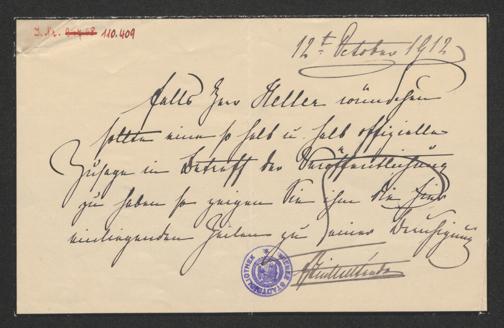 I.N. 110.409
12t October 1912
Falls Herr Heller wünschen
sollte eine so halb u. halb offizielle
Zusage in Betreff der Veröffentlichung
zu haben so zeigen Sie ihm die hier
einliegenden Zeilen zu seiner Beruhigung
WIENER STADTBIBLIOTHEK